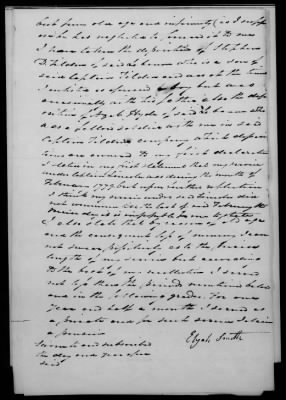 but from old age and infirmity (as I suppose
which has neglected, ... to me
I have taken the deposition of Stephen
D. Tilden of said Lebanon who is a son of
said Captain Tilden and was at the time
I enlisted a small boy but was
occasionally at the ... also the depo
sition of Elijah Hyde of said Lebanon who
was a fellow soldier with me in said
Captain Tildens company, which deposi
tions are annexed to my first declaration
I state in my first declaration that my service
under Captain Lincoln was during the month of
February 1777 but upon further reflection
I think my service under said Lincoln did
not commence till the last of said February
I also state that by reason of old age
and the consequent loss of memory I can
not swear positively as to the precise
length of my service but according
to the best of my recollection I served
not less than the periods mentioned below
and in the following grades. For one
year and half a month I served as
a private and for such service I claim
a pension
Sworn to and subscribed
the day and year afore
said
Elijah Smith